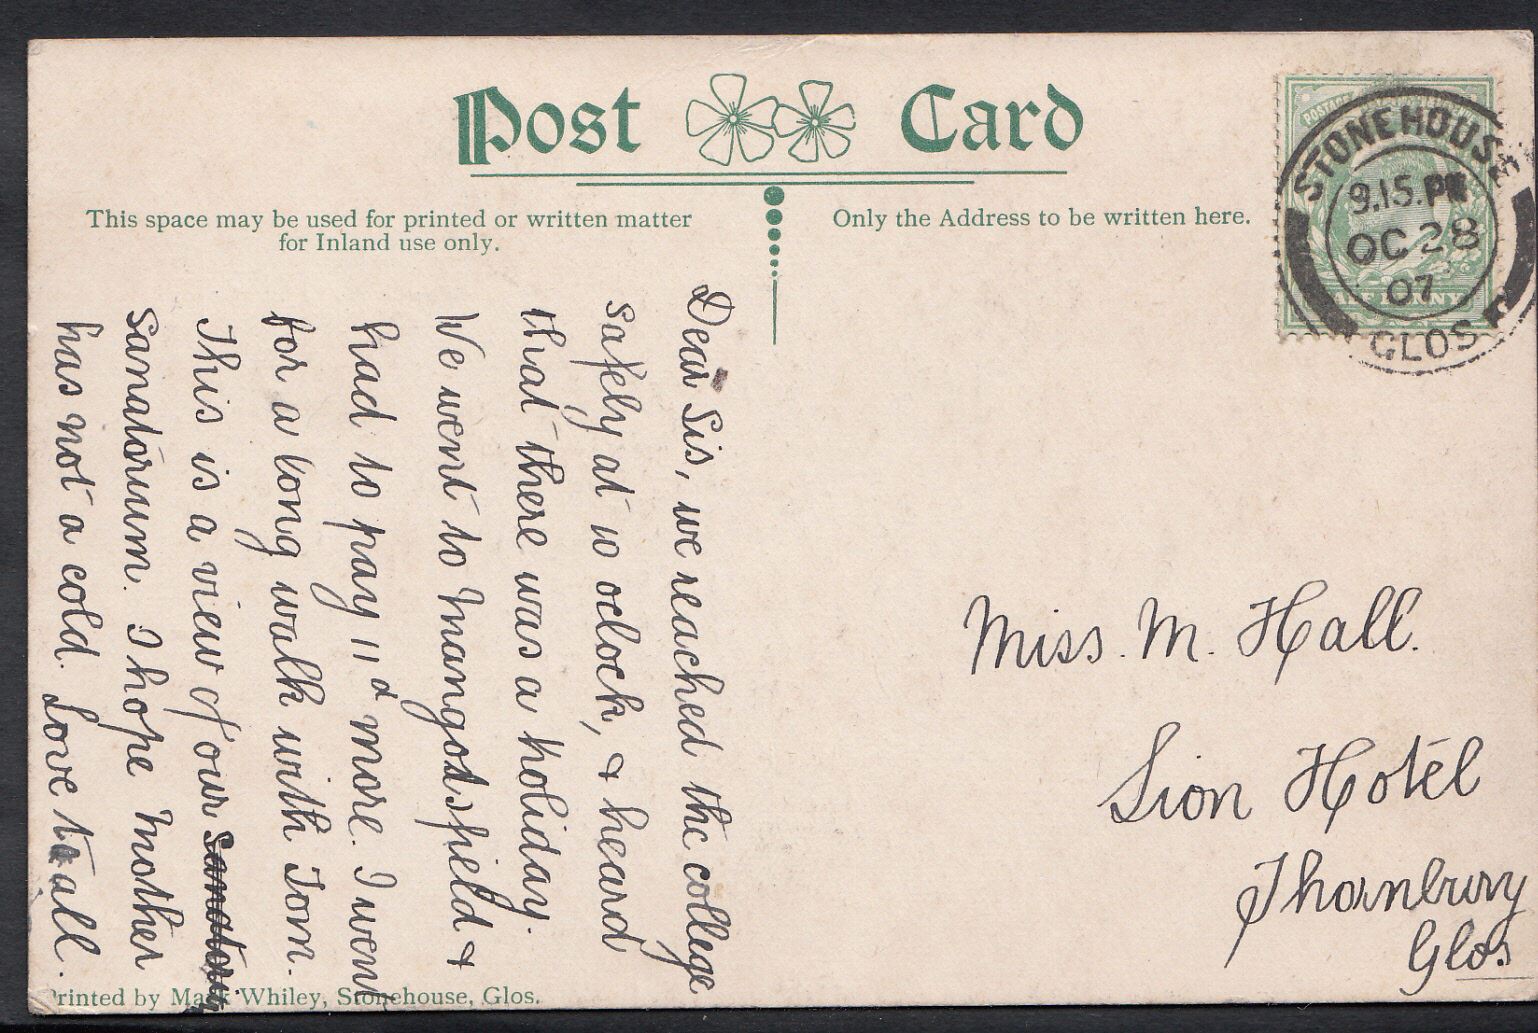 Post Card
This space may be used for printed or written matter
for Inland use only.
Only the Address to be written here.
STONEHOUSE
9.15.PM
OC 28
07
GLOS
POSTAGE
HALF PENNY
Dear Sis, we reached the college
safely at 10 oclock, & heard
that there was a holiday.
We went to Mangotsfield &
had to pay 11d more. I went
for a long walk with Tom.
This is a view of our
sanatorium. I hope Mother
has not a cold. Love to all.
Miss. M. Hall.
Lion Hotel
Thornbury
Glos.
Printed by Mark Whiley, Stonehouse, Glos.